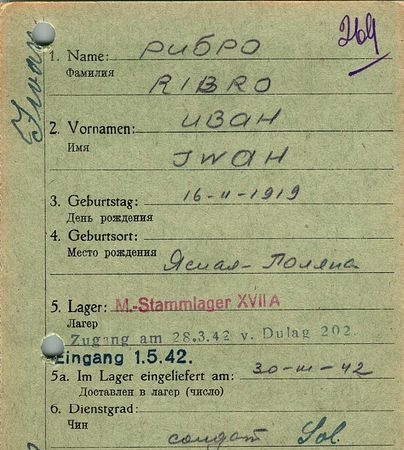 269
Iwan
1. Name: РИБРО
Фамилия
RIBRO
2. Vornamen: ИВАН
Имя
IWAN
3. Geburtstag: 16-II-1919
День рождения
4. Geburtsort:
Место рождения
Ясная-Поляна
5. Lager: M.-Stammlager XVII A
Лагерь
Zugang am 28.3.42 v. Dulag 202.
Eingang 1.5.42.
5a. Im Lager eingeliefert am: 30-III-42
Доставлен в лагерь (число)
6. Dienstgrad:
Чин
солдат Sol.